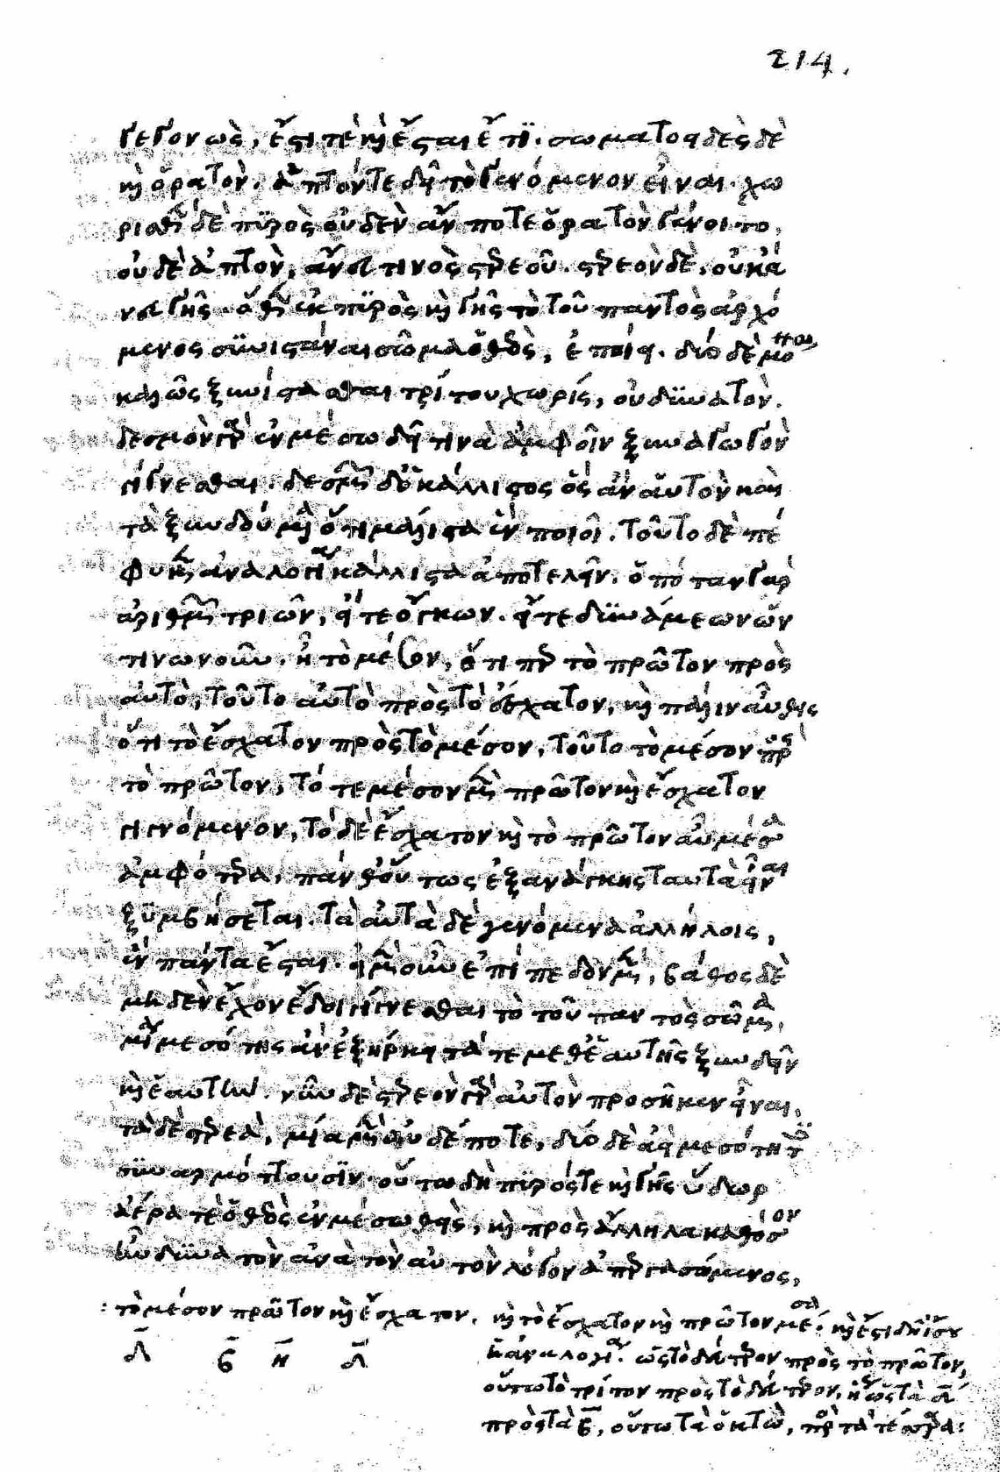 214.
γεγονὼς, ἔστι τε καὶ ἔσται ἔτι. σωματοειδὲς δὲ
καὶ ὁρατὸν. ἁπτόν τε δεῖ τὸ γενόμενον εἶναι. χω
ρισθὲν δὲ πυρὸς οὐδὲν ἄν ποτε ὁρατὸν γένοιτο,
οὐδὲ ἁπτὸν, ἄνευ τινὸς στερεοῦ. στερεὸν δὲ, οὐκ ἄ
νευ γῆς. ὅθεν ἐκ πυρὸς καὶ γῆς τὸ τοῦ παντὸς ἀρχό
μενος συνιστάναι σῶμα ὁ θεὸς, ἐποίει. δύο δὲ μόνω
καλῶς ξυνίστασθαι τρίτου χωρίς, οὐ δυνατὸν.
δεσμὸν γὰρ ἐν μέσω δεῖ τινὰ ἀμφοῖν ξυναγωγὸν
γίγνεσθαι. δεσμῶν δὲ κάλλιστος ὃς ἂν αὑτὸν καὶ
τὰ ξυνδούμενα ὅτι μάλιστα ἓν ποιῇ. τοῦτο δὲ πέ
φυκεν ἀναλογία κάλλιστα ἀποτελεῖν. ὁπόταν γὰρ
ἀριθμῶν τριῶν, εἴτε ὄγκων. εἴτε δυνάμεων ὧν
τινωνοῦν. ᾖ τὸ μέσον, ὅτι περ τὸ πρῶτον πρὸς
αὐτὸ, τοῦτο αὐτὸ πρὸς τὸ ἔσχατον, καὶ πάλιν αὖθις
ὅτι τὸ ἔσχατον πρὸς τὸ μέσον, τοῦτο τὸ μέσον πρὸς
τὸ πρῶτον, τό τε μέσον μὲν πρῶτον καὶ ἔσχατον
γινόμενον, τὸ δὲ ἔσχατον καὶ τὸ πρῶτον αὖ μέσα
ἀμφότερα, πάνθ' οὕτως ἐξ ἀνάγκης ταυτὰ εἶναι
ξυμβήσεται. τὰ αὐτὰ δὲ γενόμενα ἀλλήλοις,
ἓν πάντα ἔσται. εἰ μὲν οὖν ἐπίπεδον μὲν, βάθος δὲ
μηδὲν ἔχον ἔδει γίγνεσθαι τὸ τοῦ παντὸς σῶμα,
μία μεσότης ἂν ἐξήρκει τά τε μεθ' ἑαυτῆς ξυνδεῖν
καὶ ἑαυτήν. νῦν δὲ στερεὸν γὰρ αὐτὸν προσῆκεν εἶναι,
τὰ δὲ στερεὰ, μία μὲν οὐδέποτε, δύο δὲ ἀεὶ μεσότητες
συναρμόττουσιν. οὕτω δὴ πυρός τε καὶ γῆς ὕδωρ
ἀέρα τε ὁ θεὸς ἐν μέσω θεὶς, καὶ πρὸς ἄλληλα καθόσον
ἦν δυνατὸν ἀνὰ τὸν αὐτὸν λόγον ἀπεργασάμενος,
: τὸ μέσον πρῶτον καὶ ἔσχατον. καὶ τὸ ἔσχατον καὶ πρῶτον μέσα. καὶ ἔστι δὴ ἴσου
δ β η δ κἀναλογία. ὡς τὸ δεύτερον πρὸς τὸ πρῶτον,
οὕτω τὸ τρίτον πρὸς τὸ δεύτερον, ἢ ὡς τὰ δ
πρὸς τὰ β, οὕτω τὰ ὀκτὼ, πρὸς τὰ τέσσαρα: